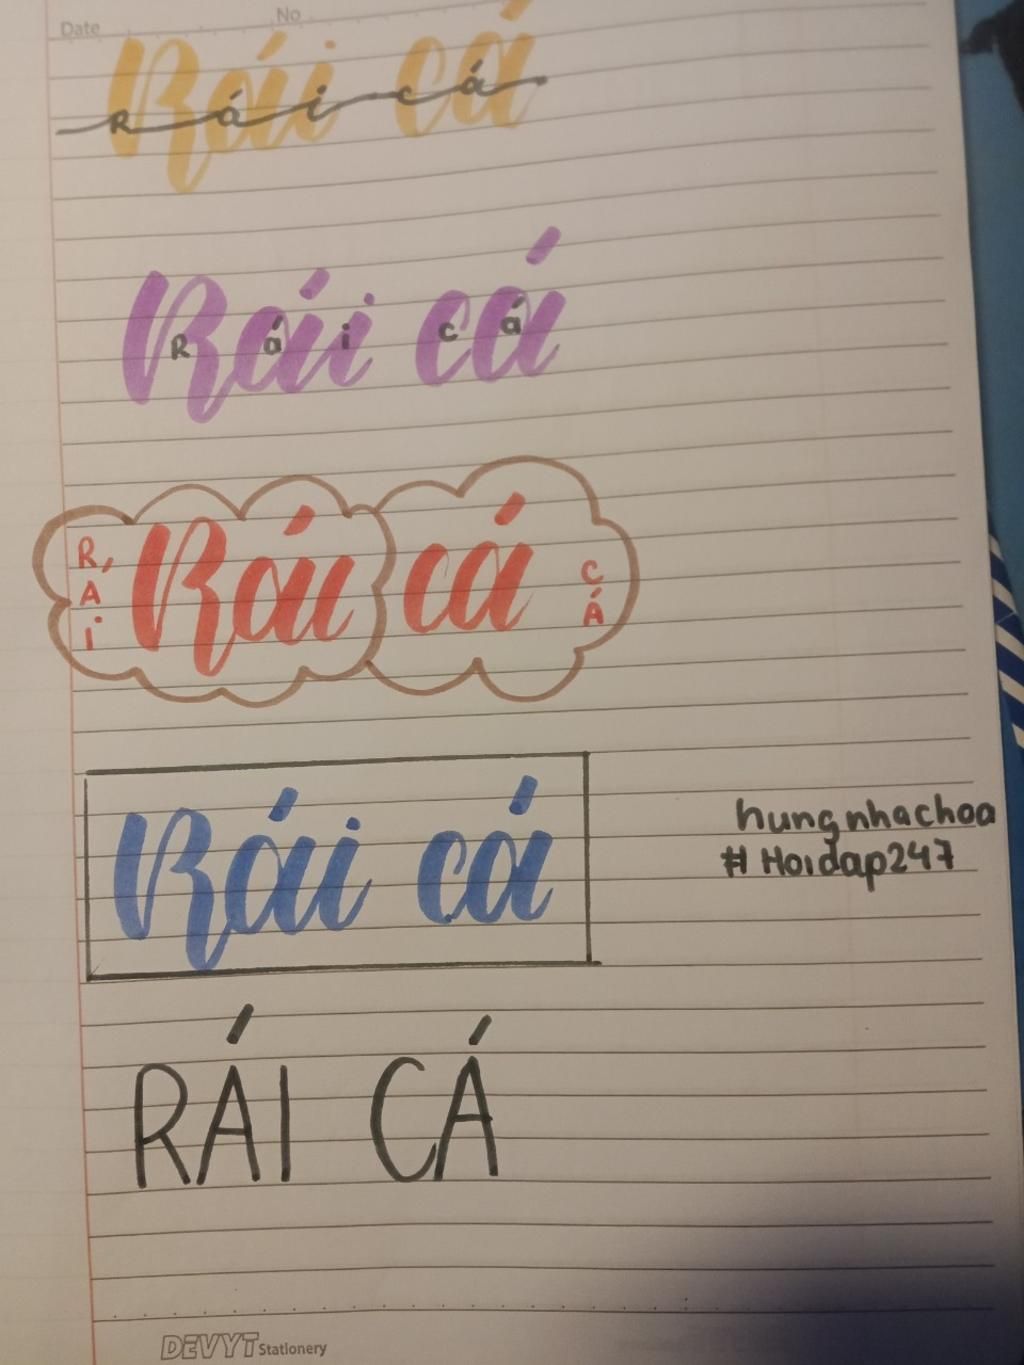 Date No
Rái cá
R á i c á
Rái cá
R á i c á
R Á i
Rái cá
C Á
Rái cá
hungnhachoa
#Hoidap247
RÁI CÁ
DEVYT Stationery